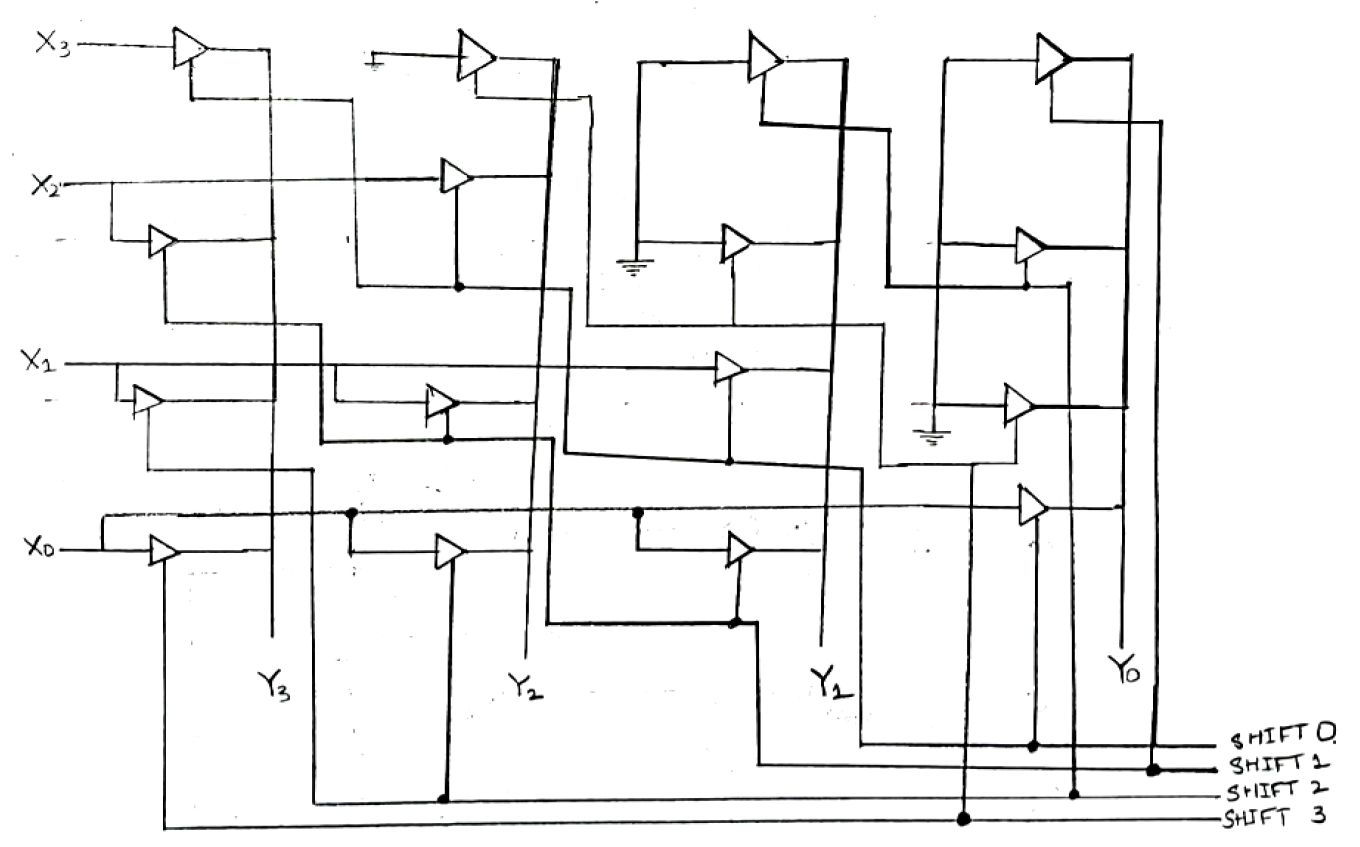 X3
X2
X1
X0
Y3
Y2
Y1
Y0
SHIFT 0
SHIFT 1
SHIFT 2
SHIFT 3